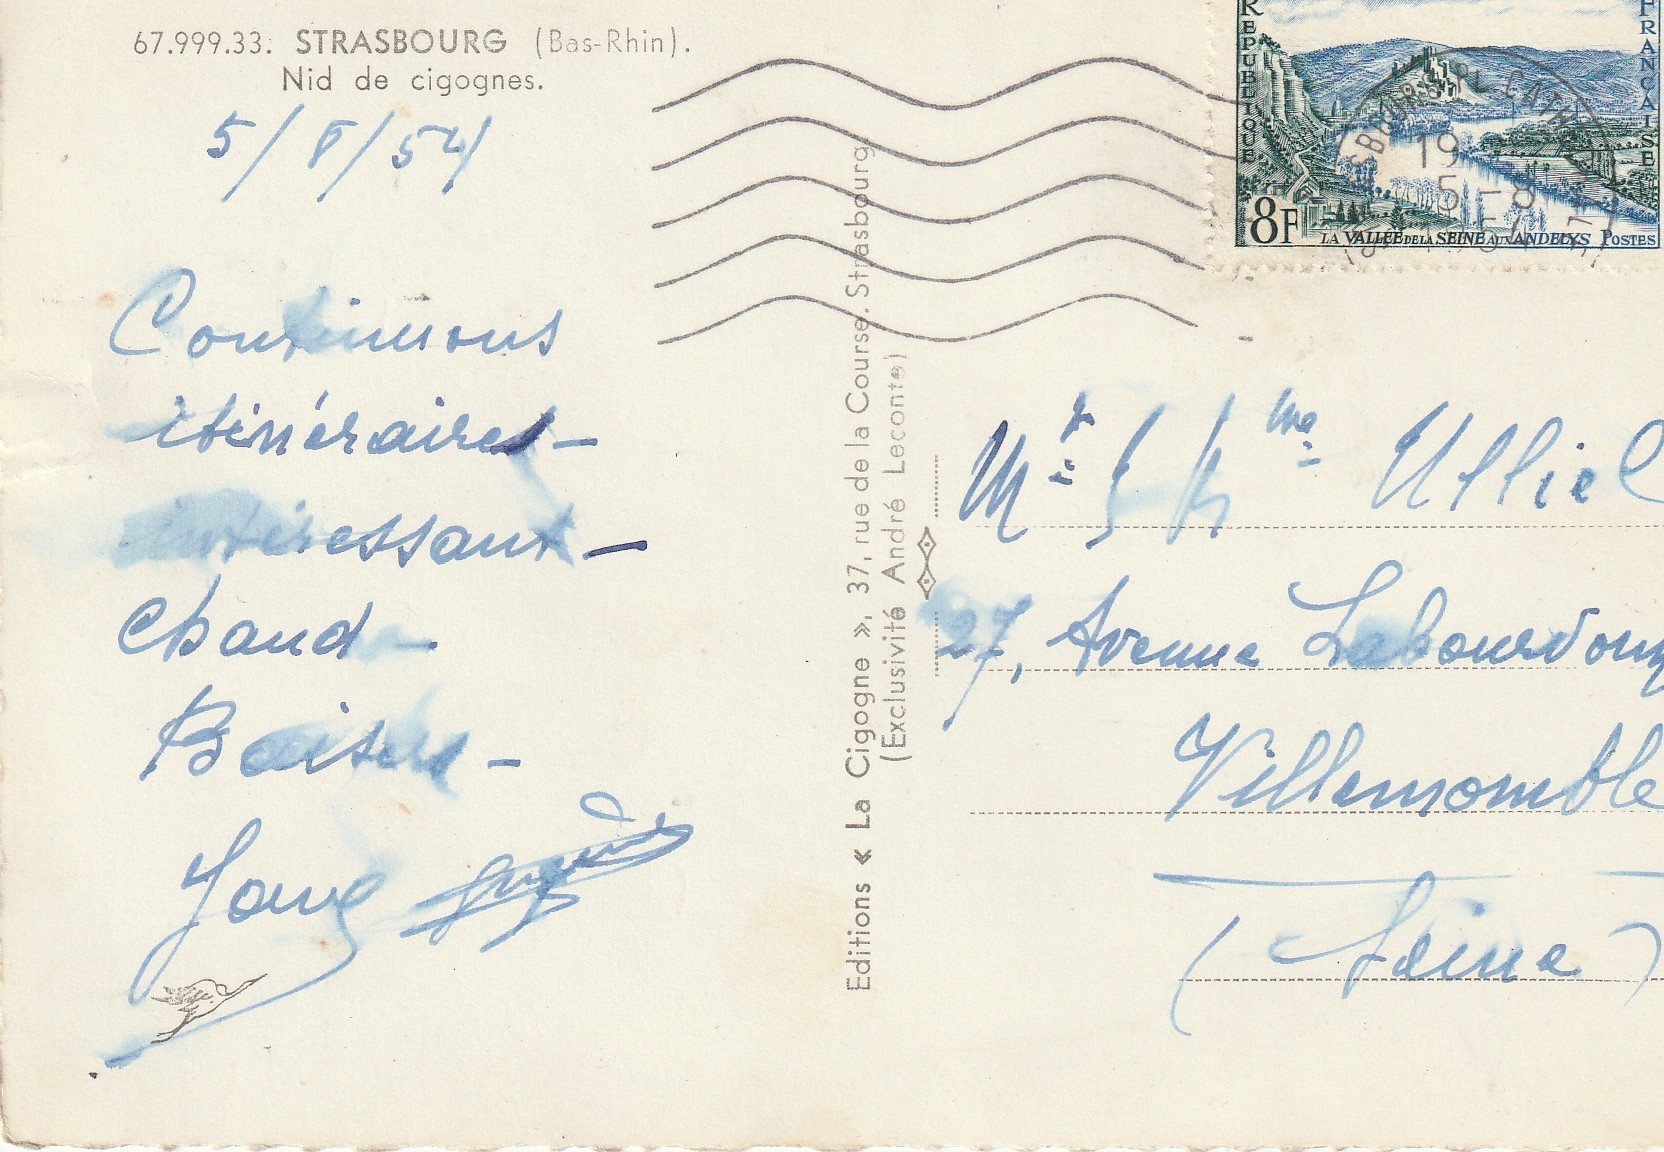 67.999.33. STRASBOURG (Bas-Rhin).
Nid de cigognes.
5/8/54
Continuons
itinéraires –
intéressant –
Chaud –
Baisers –
Editions « La Cigogne », 37, rue de la Course. Strasbourg
(Exclusivité André Leconte)
REPUBLIQUE FRANCAISE
8F
LA VALLÉE DE LA SEINE AUX ANDELYS POSTES
19
5-8
Mr Mme Ulliel
27, Avenue Labourdonn
Villemomble
(Seine)